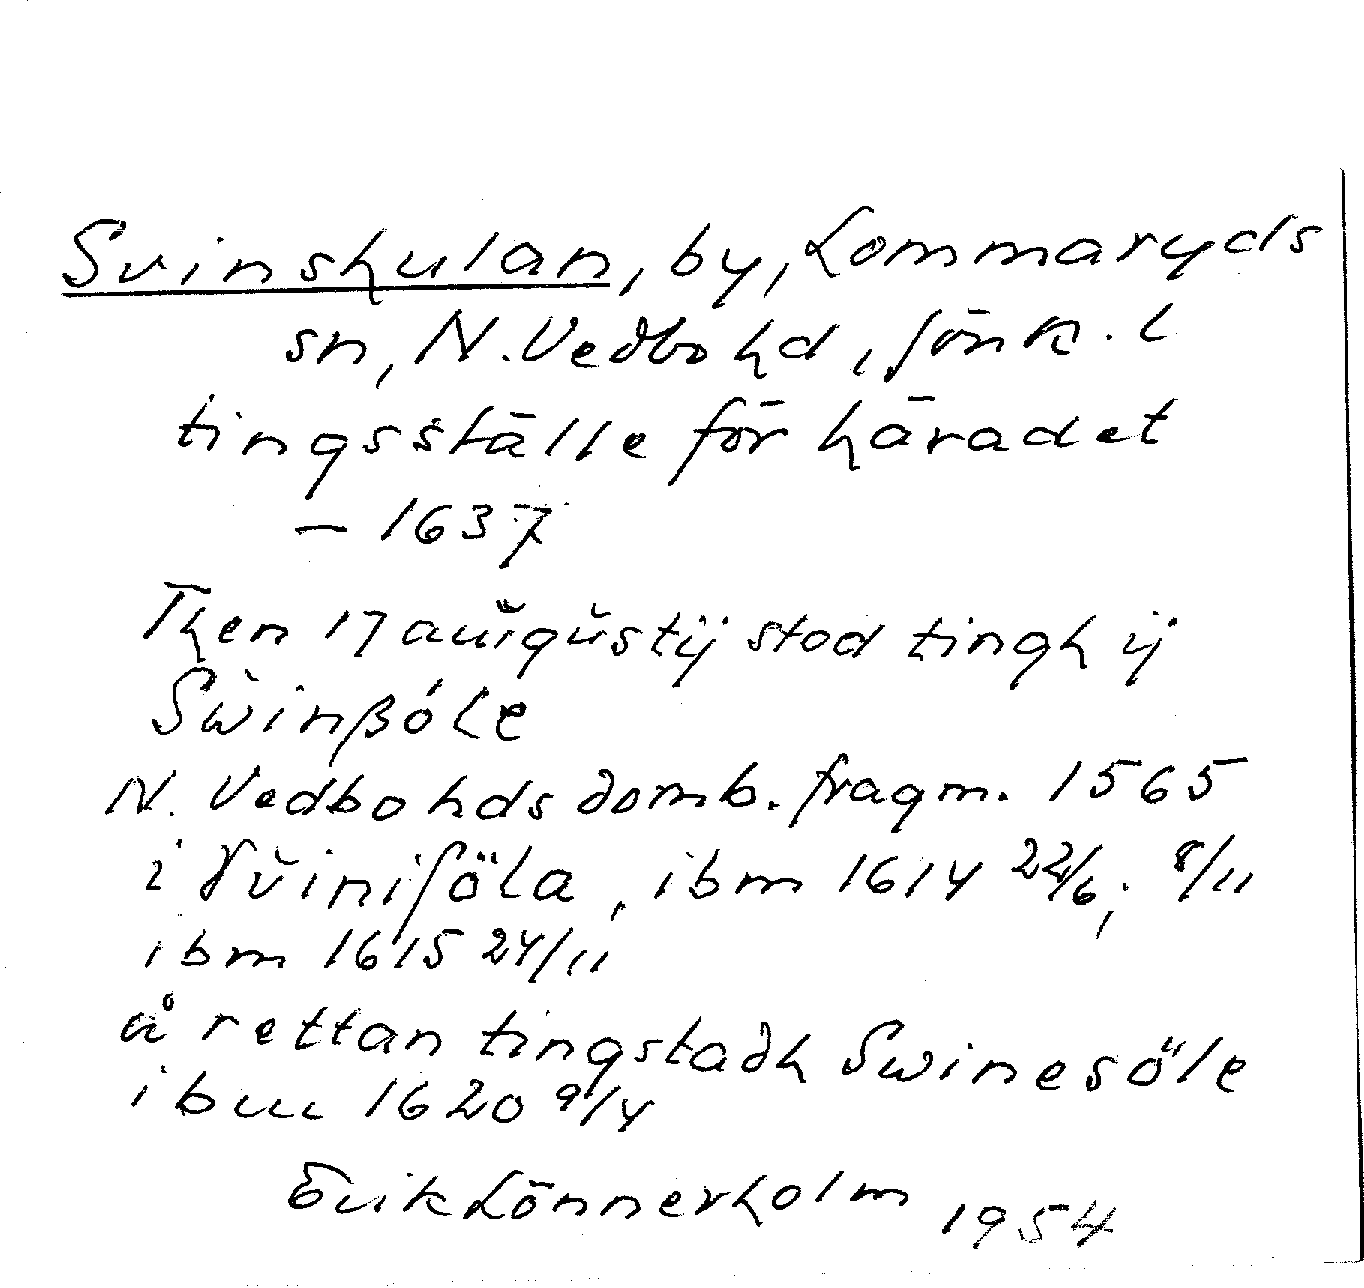 Svinshulan, by, Lommaryds
sn, N. Vedbo hd, Jönk. l
tingsställe för häradet
— 1637
Then 17 augŭstij stod tingh ij
Swinßóle
N. Vedbo hds domb. fragm. 1565
i Sviniſöla, ibm 1614 22/6; 8/11
ibm 1615 24/11
å rettan tingstadh Swinesöle
ibm 1620 9/4
Erik Lönnerholm 1954